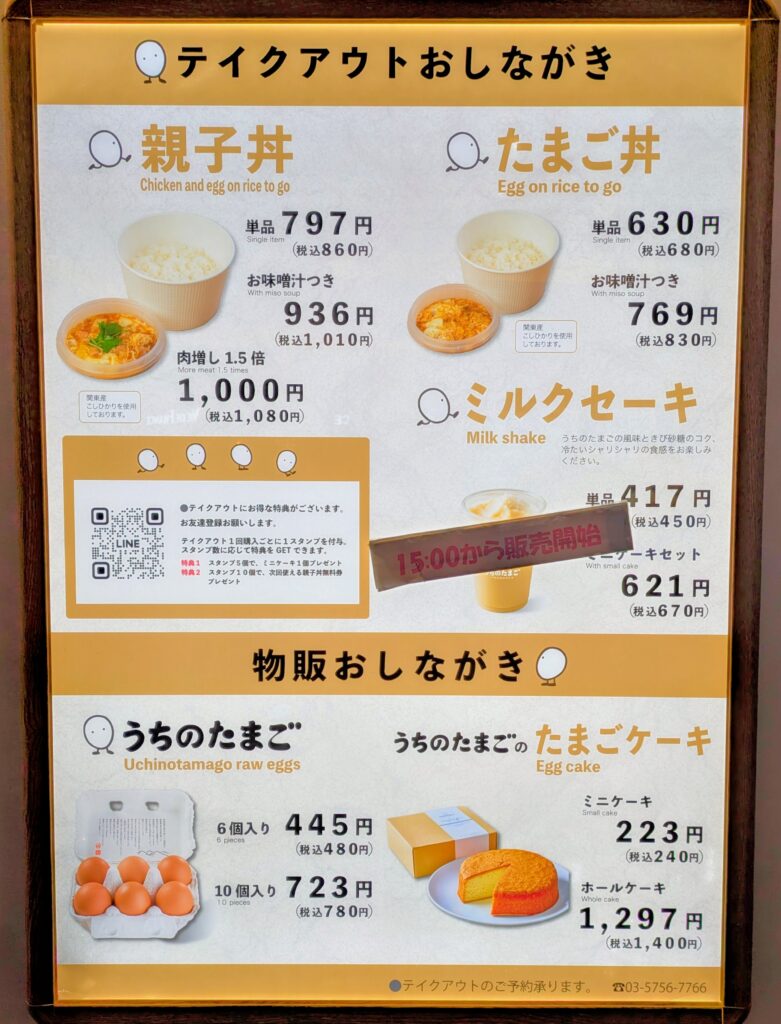 テイクアウトおしながき
親子丼
Chicken and egg on rice to go
単品 797円
Single item
(税込860円)
お味噌汁つき
With miso soup
936円
(税込1,010円)
肉増し1.5倍
More meat 1.5 times
1,000円
(税込1,080円)
関東産
こしひかりを使用
しております。
たまご丼
Egg on rice to go
単品 630円
Single item
(税込680円)
お味噌汁つき
With miso soup
769円
(税込830円)
関東産
こしひかりを使用
しております。
ミルクセーキ
Milk shake
うちのたまごの風味ときび砂糖のコク、
冷たいシャリシャリの食感をお楽しみ
ください。
単品 417円
(税込450円)
15:00から販売開始
ミニケーキセット
With small cake
621円
(税込670円)
LINE
●テイクアウトにお得な特典がございます。
お友達登録お願いします。
テイクアウト1回購入ごとに1スタンプを付与、
スタンプ数に応じて特典をGETできます。
特典1 スタンプ5個で、ミニケーキ1個プレゼント
特典2 スタンプ10個で、次回使える親子丼無料券
プレゼント
物販おしながき
うちのたまご
Uchinotamago raw eggs
6個入り 445円
6 pieces
(税込480円)
10個入り 723円
10 pieces
(税込780円)
うちのたまごの たまごケーキ
Egg cake
ミニケーキ
Small cake
223円
(税込240円)
ホールケーキ
Whole cake
1,297円
(税込1,400円)
●テイクアウトのご予約承ります。 ☎03-5756-7766